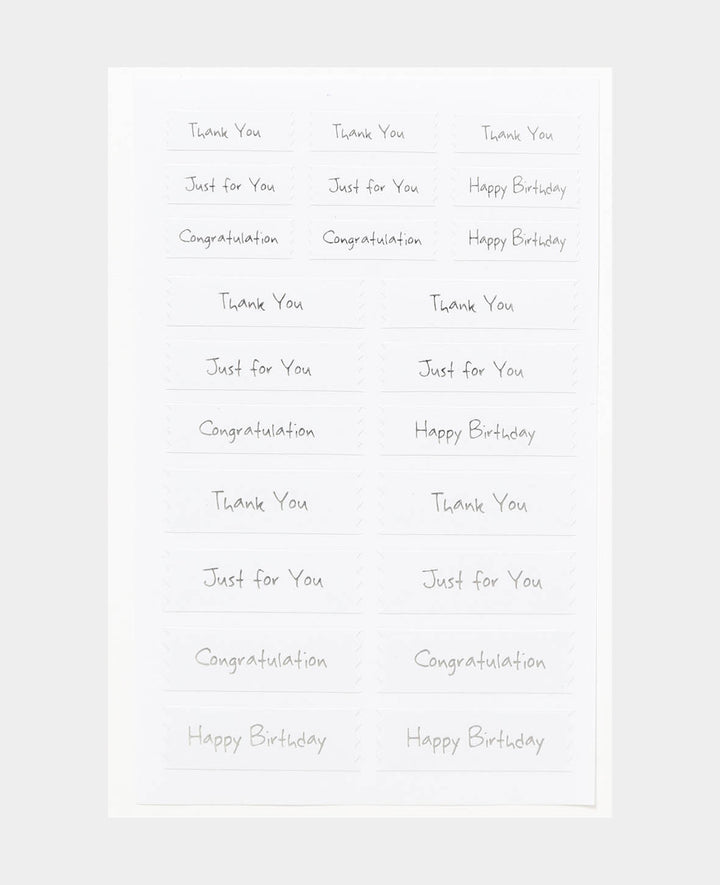 Thank You Thank You Thank You
Just for You Just for You Happy Birthday
Congratulation Congratulation Happy Birthday
Thank You Thank You
Just for You Just for You
Congratulation Happy Birthday
Thank You Thank You
Just for You Just for You
Congratulation Congratulation
Happy Birthday Happy Birthday